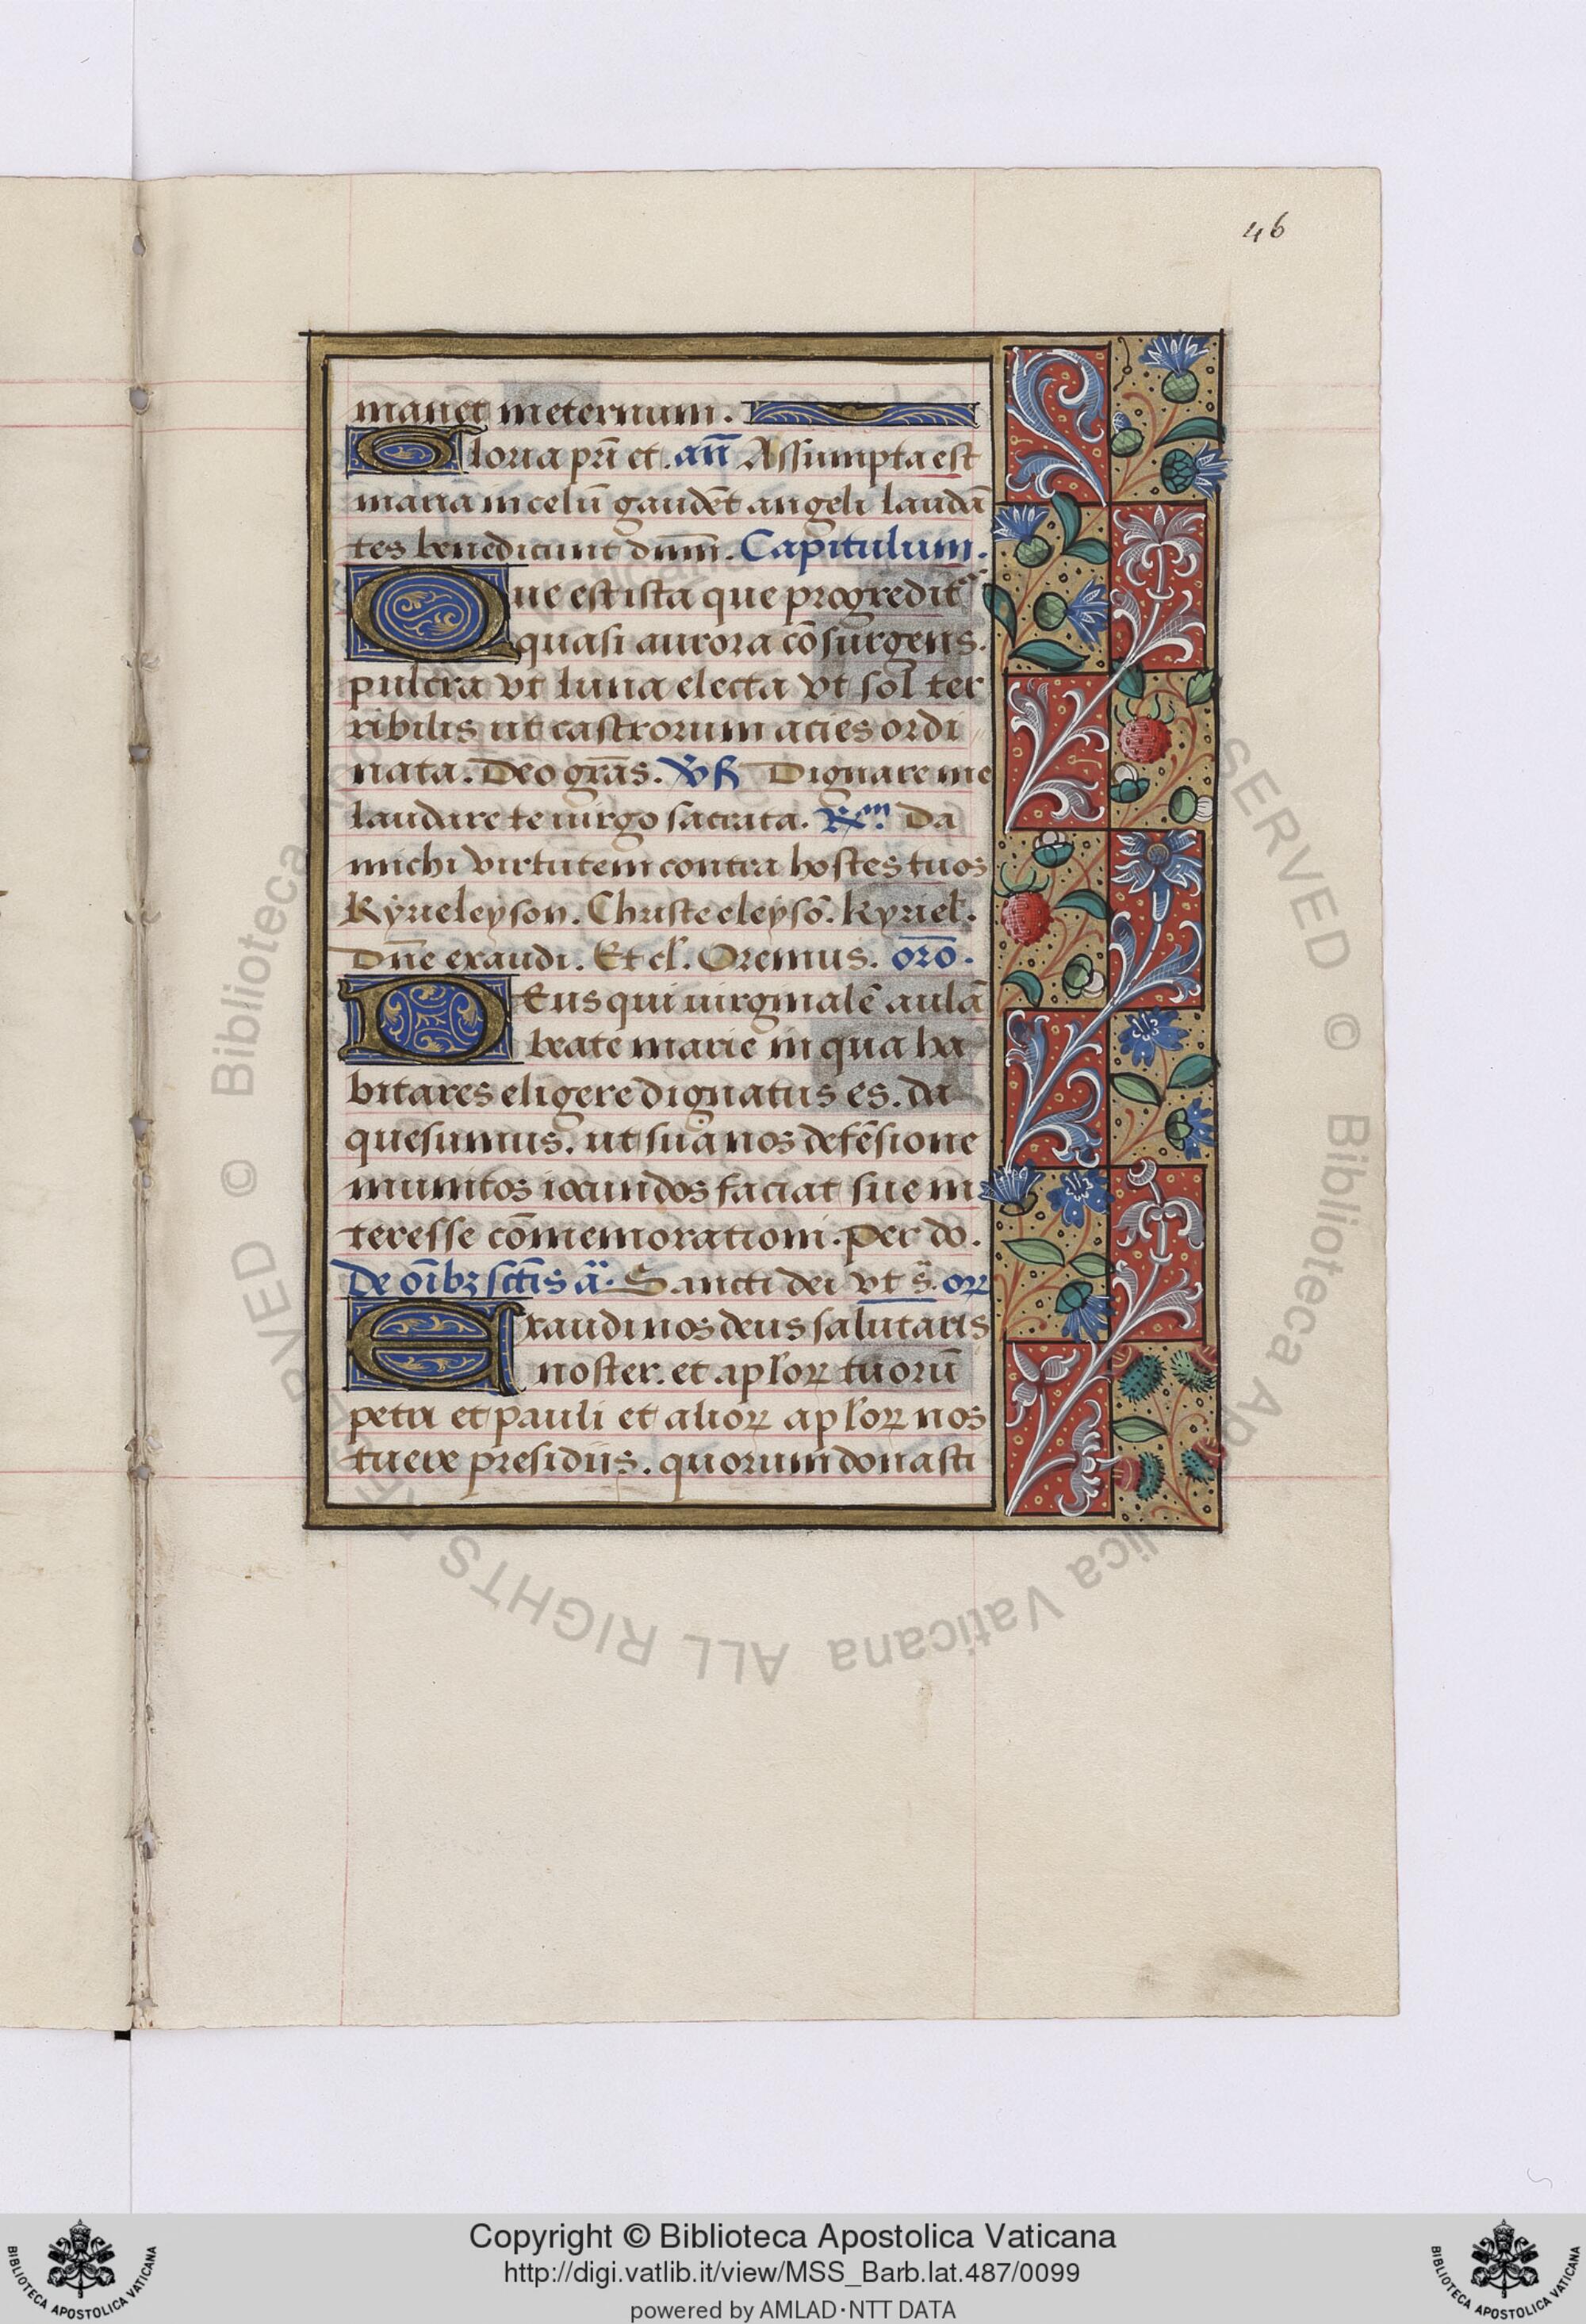 46
manet ineternum.
Gloria pr̄i et. añ Assumpta est
maria in celū gaudēt angeli laudā
tes benedicunt dnm̄. Capitulum.
Que est ista que progredit᷑
quasi aurora cōsurgens.
pulcra vt luna electa vt sol ter
ribilis ut castrorum acies ordi
nata. Deo grās. v̄s Dignare me
laudare te uirgo sacrata. R̄em. Da
michi virtutem contra hostes tuos
Kyrieleyson. Christe eleysō. kyriel.
Dn̄e exaudi. Et cl'. Oremus. orō.
DEus qui uirginalē aulā
beate marie in qua ha
bitares eligere dignatus es. da
quesumus. ut sua nos defēsione
munitos iocundos faciat sue in
teresse cōmemorationi. Per do.
De oībꝫ sctīs ā. Sancti dei vt s̄. orꝝ
Exaudi nos deus salutaris
noster. et apl'oꝝ tuorū
petri et pauli et alioꝝ apl'oꝝ nos
tuere presidiis. quorum donasti
© Biblioteca Apostolica Vaticana ALL RIGHTS RESERVED
Copyright © Biblioteca Apostolica Vaticana
http://digi.vatlib.it/view/MSS_Barb.lat.487/0099
powered by AMLAD·NTT DATA
BIBLIOTECA APOSTOLICA VATICANA
BIBLIOTECA APOSTOLICA VATICANA